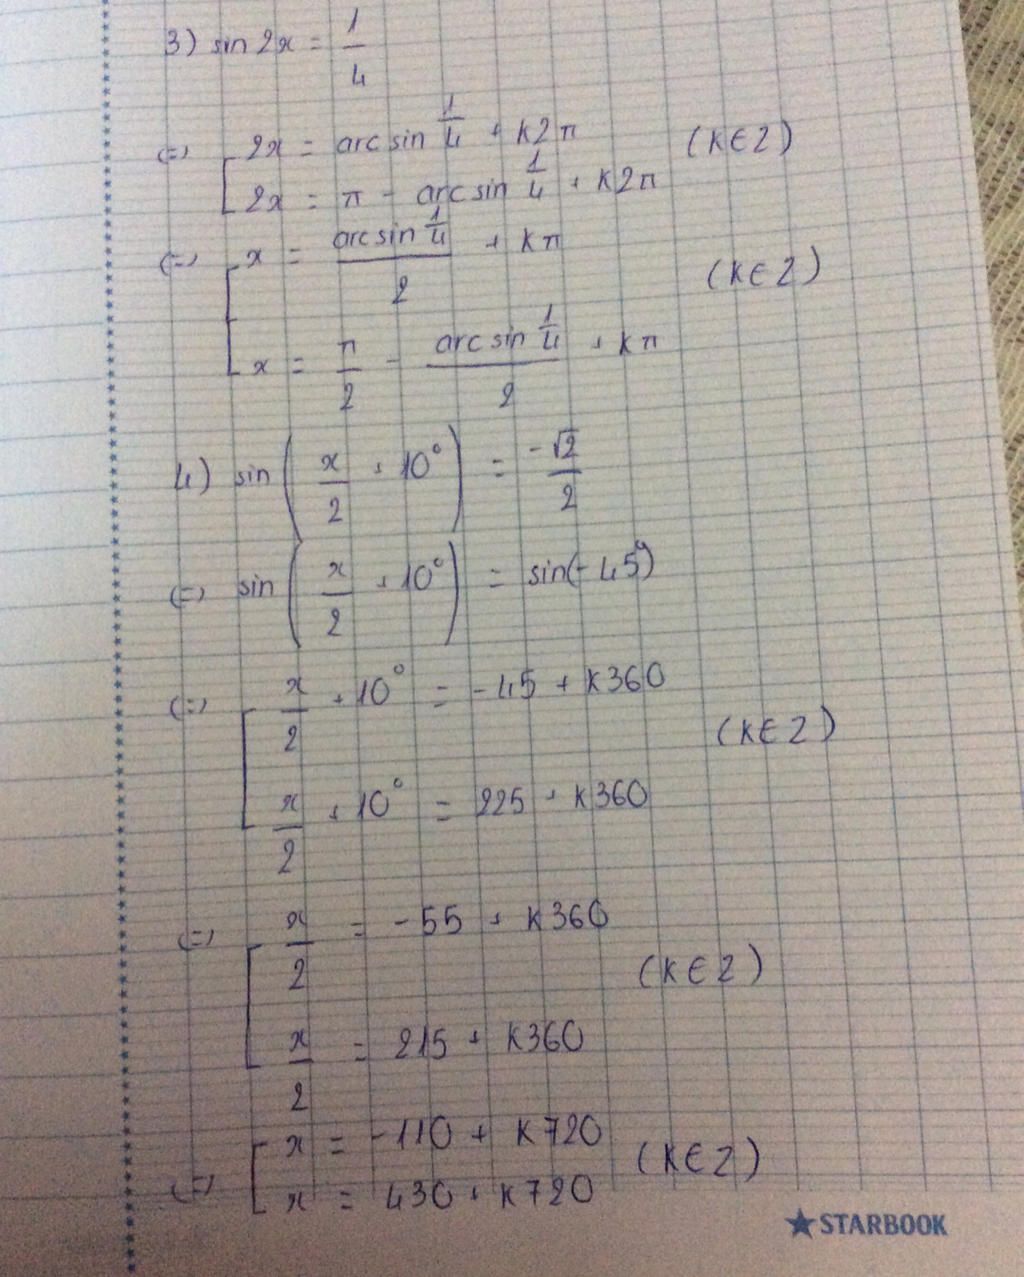 3) sin 2x = 1/4
(=) [ 2x = arc sin 1/4 + k2π (k∈Z)
2x = π - arc sin 1/4 + k2π
(=) [ x = (arc sin 1/4)/2 + kπ (k∈Z)
x = π/2 - (arc sin 1/4)/2 + kπ
4) sin(x/2 + 10°) = -√2/2
(=) sin(x/2 + 10°) = sin(-45°)
(=) [ x/2 + 10° = -45 + k360 (k∈Z)
x/2 + 10° = 225 + k360
(=) [ x/2 = -55 + k360 (k∈Z)
x/2 = 215 + k360
(=) [ x = -110 + k720 (k∈Z)
x = 430 + k720
STARBOOK